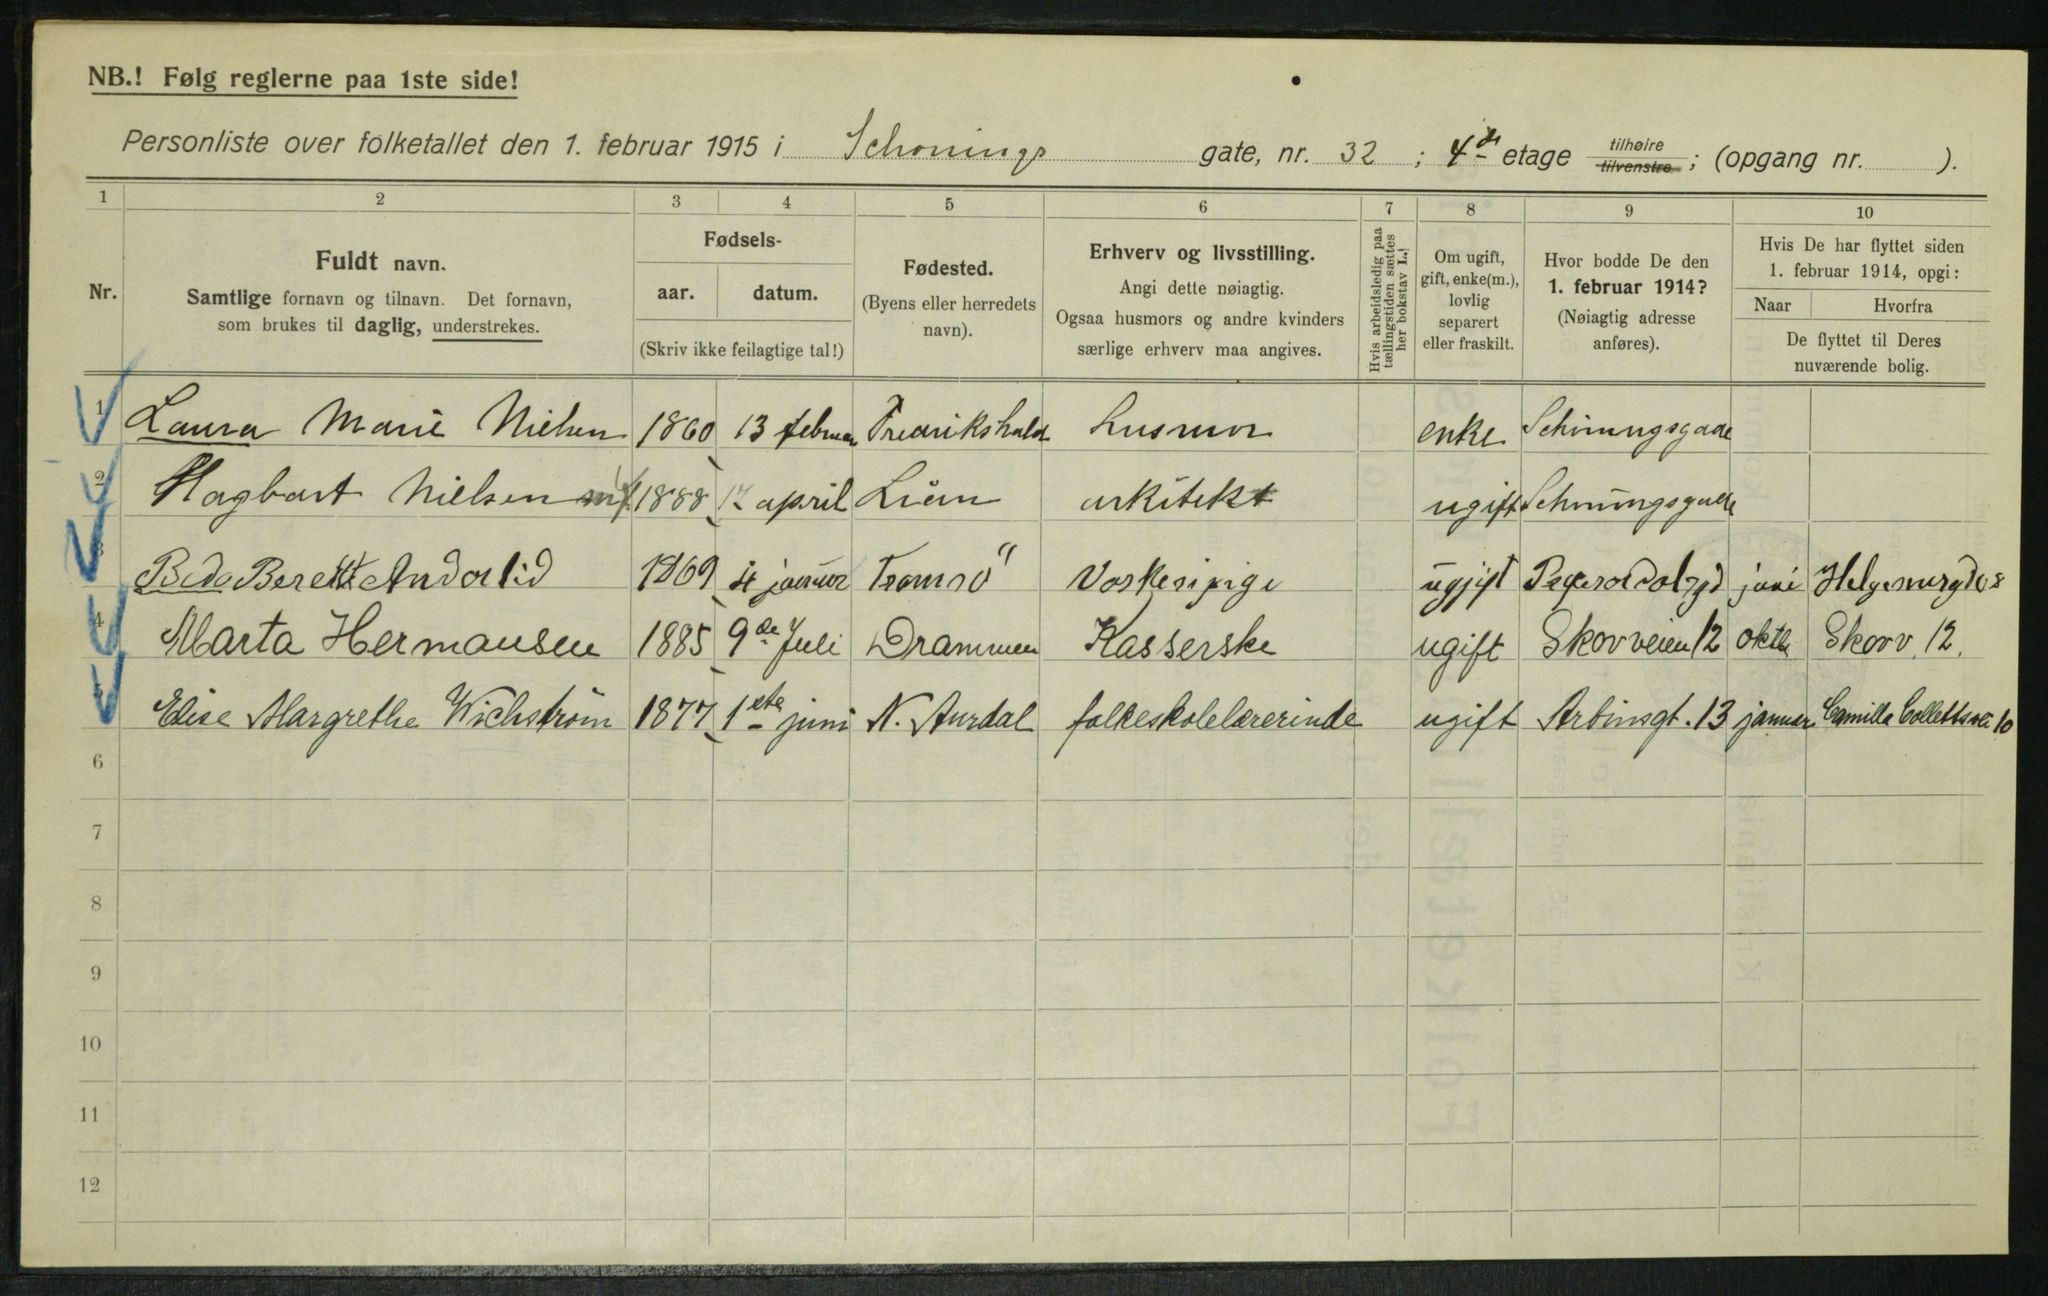 NB.! Følg reglerne paa 1ste side!
Personliste over folketallet den 1. februar 1915 i Schonings gate, nr. 32; 4de etage tilhøire tilvenstre; (opgang nr. ).
1 2 3 4 5 6 7 8 9 10
Nr.
Fuldt navn.
Samtlige fornavn og tilnavn. Det fornavn,
som brukes til daglig, understrekes.
Fødsels-
aar. datum.
(Skriv ikke feilagtige tal!)
Fødested.
(Byens eller herredets
navn).
Erhverv og livsstilling.
Angi dette nøiagtig.
Ogsaa husmors og andre kvinders
særlige erhverv maa angives.
Hvis arbeidsledig paa
tællingstiden sættes
her bokstav L.!
Om ugift,
gift, enke(m.),
lovlig
separert
eller fraskilt.
Hvor bodde De den
1. februar 1914?
(Nøiagtig adresse
anføres).
Hvis De har flyttet siden
1. februar 1914, opgi:
Naar Hvorfra
De flyttet til Deres
nuværende bolig.
1 Laura Marie Nielsen 1860 13 februar Fredrikshald husmor enke Schøningsgade
2 Hagbart Nielsen 1888 17 april Lian arkitekt ugift Schøningsgade
3 Beret 1869 4 januar Tromsö ugift juni
4 Marta Hermansen 1885 9de Juli Drammen Kasserske ugift Skovveien 12 oktb Skovv. 12.
5 Elise Margrethe Wichstrøm 1877 1ste juni N. Aurdal folkeskolelærerinde ugift Arbinsgt. 13 januar Camilla Collettsvei 10
6
7
8
9
10
11
12